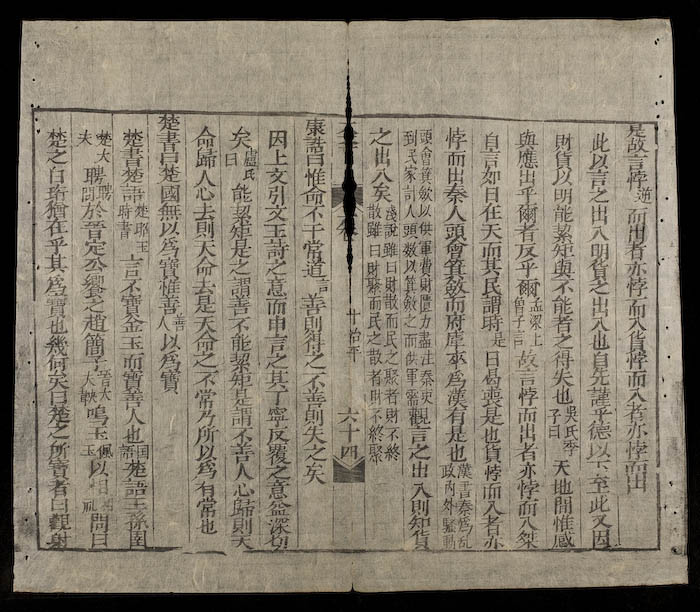 是故言悖逆而出者亦悖而入貨悖而入者亦悖而出
此以言之出入明貨之出入也自先謹乎德以下至此又因
財貨以明能絜矩與不能者之得失也吳氏季子曰天地間惟感
與應出乎爾者反乎爾孟梁上曾子言故言悖而出者亦悖而入桀
自言如日在天而其民謂時是日曷喪是也貨悖而入者亦
悖而出秦人頭會箕斂而府庫卒爲漢有是也漢書秦爲亂政內外騷動
頭會箕斂以供軍費財匱力盡註秦吏到民家計人頭數以箕斂之而供軍需觀言之出入則知貨
之出入矣淺說雖曰財散而民之聚者財不終散雖曰財聚而民之散者財不終聚
六十四
康誥曰惟命不于常道言善則得之不善則失之矣
因上文引文王詩之意而申言之其丁寧反覆之意益深切
矣盧氏曰能絜矩是之謂善不能絜矩是謂不善人心歸則天
命歸人心去則天命去是天命之不常乃所以爲有常也
楚書曰楚國無以爲寶惟善善人以爲寶
楚書楚語楚昭王時書言不寶金玉而寶善人也國語楚語王孫圉
楚大夫聘聘問於晉定公饗之趙簡子晉大夫鞅鳴玉佩玉以相相禮問曰
楚之白珩猶在乎其爲寶也幾何矣曰楚之所寶者曰觀射